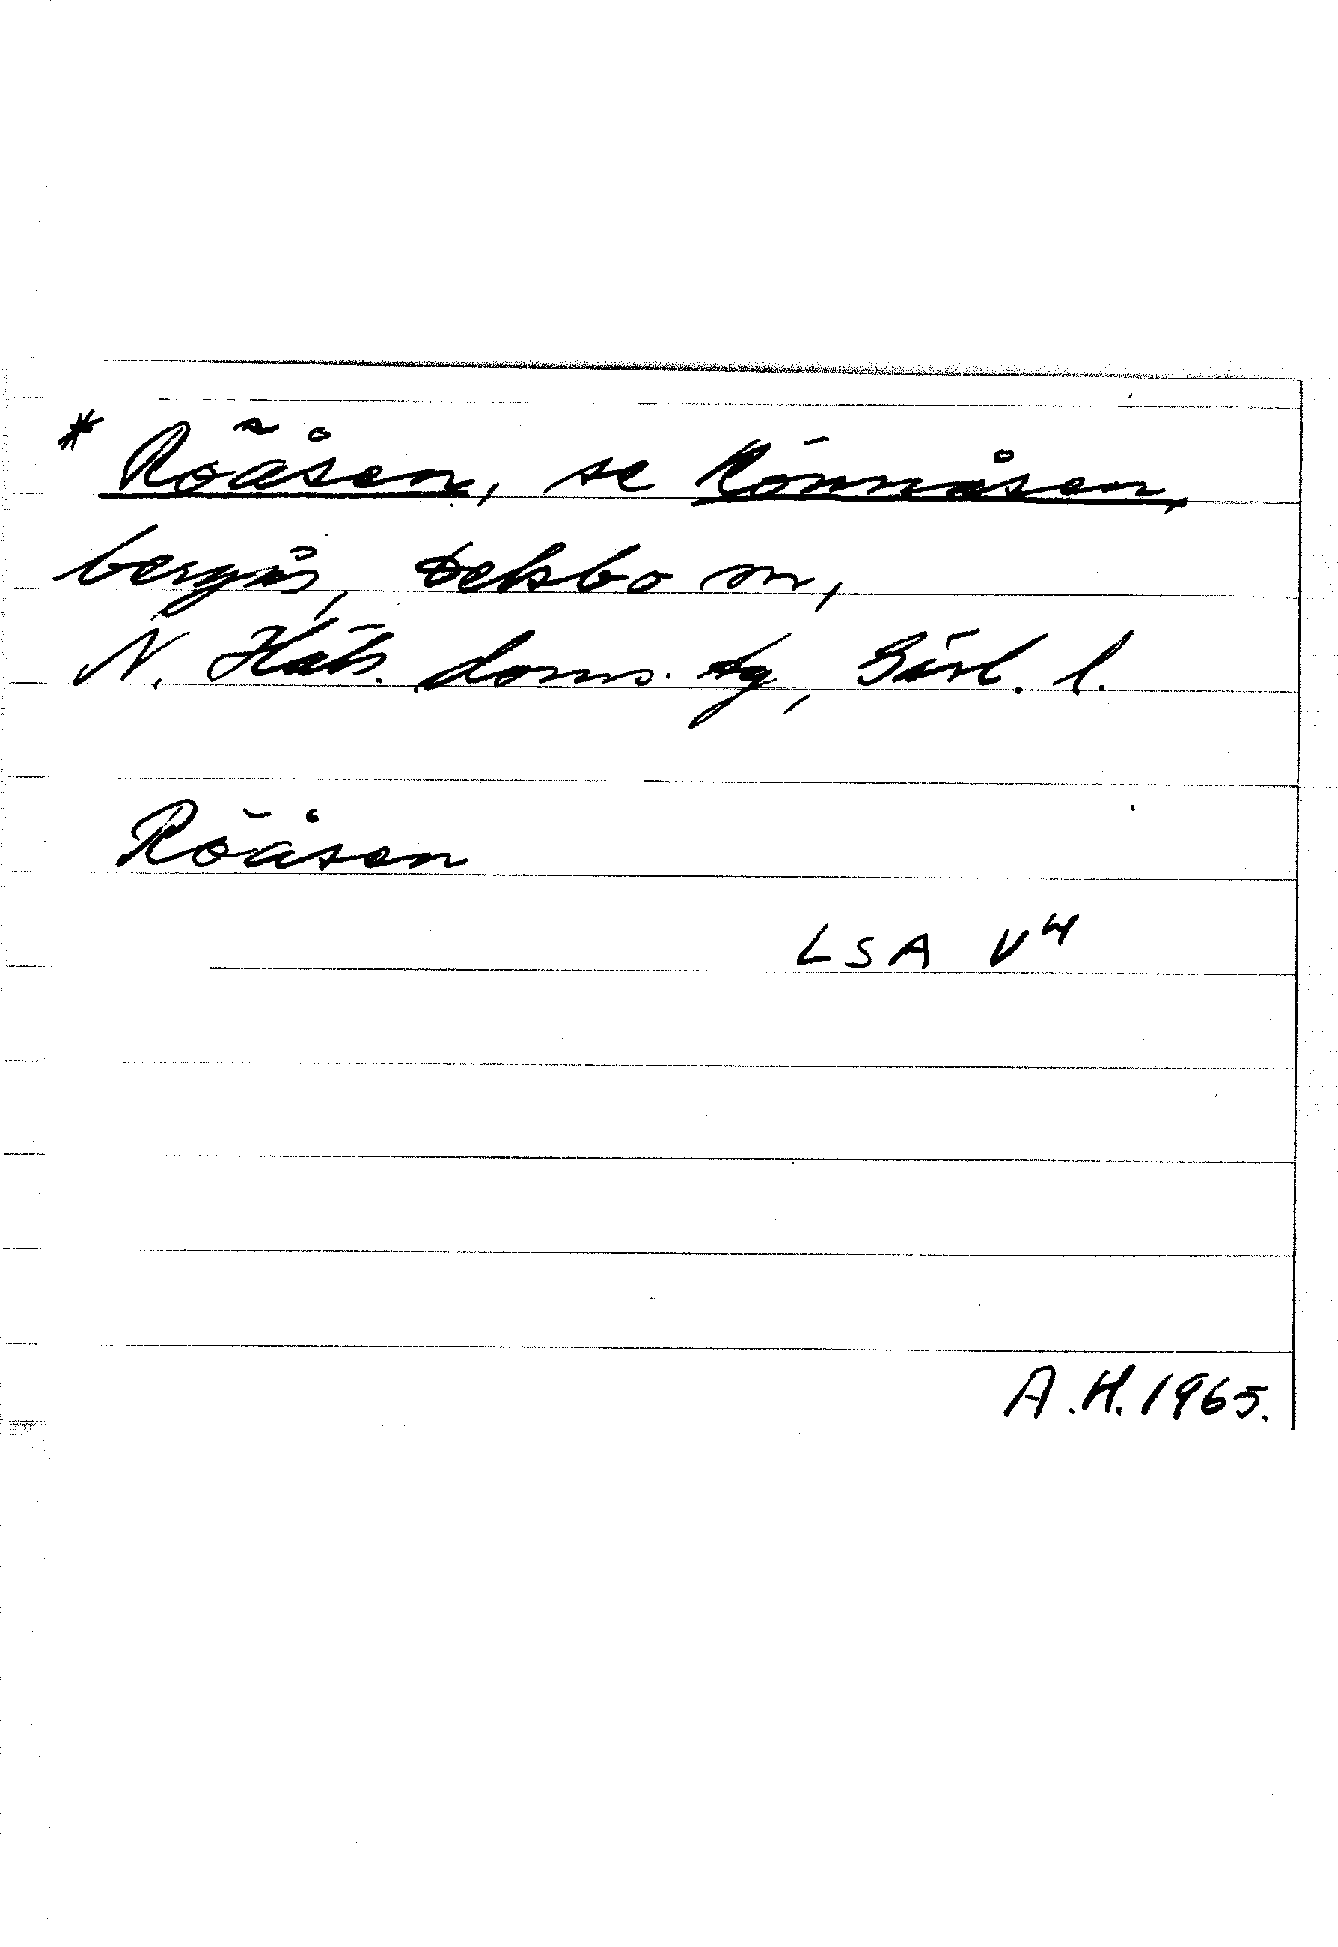 * Röåsen, se Rönnåsen,
bergås, Delsbo sn,
N. Häls. doms. sg, Gävl. l.
Röåsen
LSA V4
A.H. 1965.